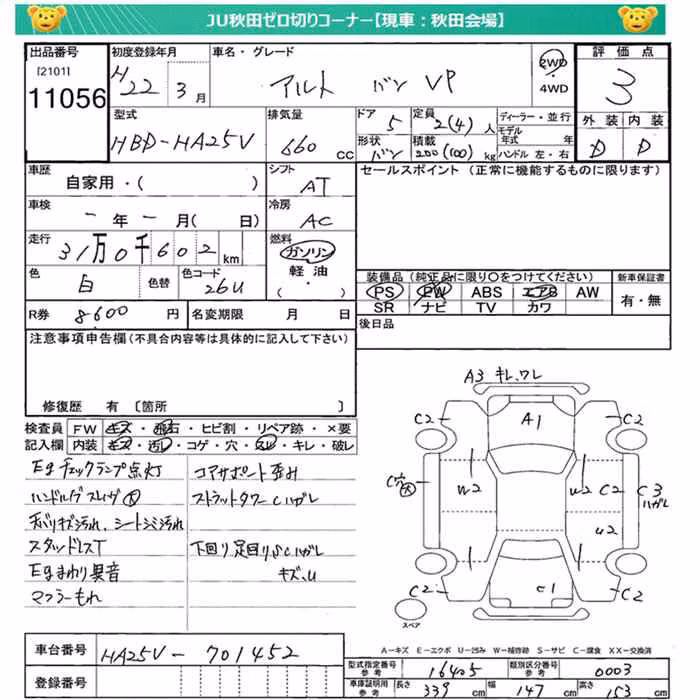 JU秋田ゼロ切りコーナー【現車：秋田会場】
出品番号
[2101]
11056
初度登録年月
H22 3月
車名・グレード
アルト バン VP
2WD
・
4WD
評価点
3
外装 内装
D D
型式
HBD-HA25V
排気量
660 cc
ドア
5
定員
2(4)人
形状
バン
積載
200(100)kg
ディーラー・並行
モデル
年式 年
ハンドル 左・右
車歴
自家用・( )
シフト
AT
セールスポイント（正常に機能するものに限ります）
車検
ー年ー月( 日)
冷房
AC
走行
31万0千602km
燃料
ガソリン
軽油・
( )
色
白
色替
色コード
26U
装備品（純正品に限り○をつけてください）
PS PW ABS エアB AW
SR ナビ TV カワ
新車保証書
有・無
R券
8600円
名変期限 月 日
後日品
注意事項申告欄（不具合内容等は具体的に記入して下さい）
修復歴 有〔箇所 〕
検査員
記入欄
FW キズ・飛石・ヒビ割・リペア跡・×要
内装 キズ・汚レ・コゲ・穴・スレ・キレ・破レ
Egチェックランプ点灯
ハンドルグスレ
天バリキズ汚れ、シートシミ汚れ
スタッドレスT
Egまわり異音
マフラーもれ
コアサポート歪み
ストラットタワーCハガレ
下回り足回りSCハガレ
キズ、U
A3 キレ、ワレ
C2
A1
C2
C穴大
W2
U2
C2
C3
ハガレ
U2
C2
C1
C2
スペア
A－キズ E－エクボ U－凹み W－補修跡 S－サビ C－腐食 XX－交換済
車台番号
HA25V-701452
登録番号
型式指定番号
参考
16405
類別区分番号
参考
0003
車庫証明用
参考
長さ
339cm
幅
147cm
高さ
153cm